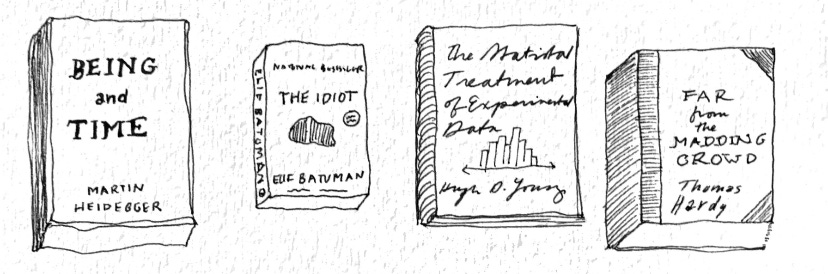 BEING
and
TIME
MARTIN
HEIDEGGER
ELIF BATUMAN
NATIONAL BESTSELLER
THE IDIOT
ELIF BATUMAN
The Statistal
Treatment
of Experimental
Data
Hugh D. Young
FAR
from
the
MADDING
CROWD
Thomas
Hardy